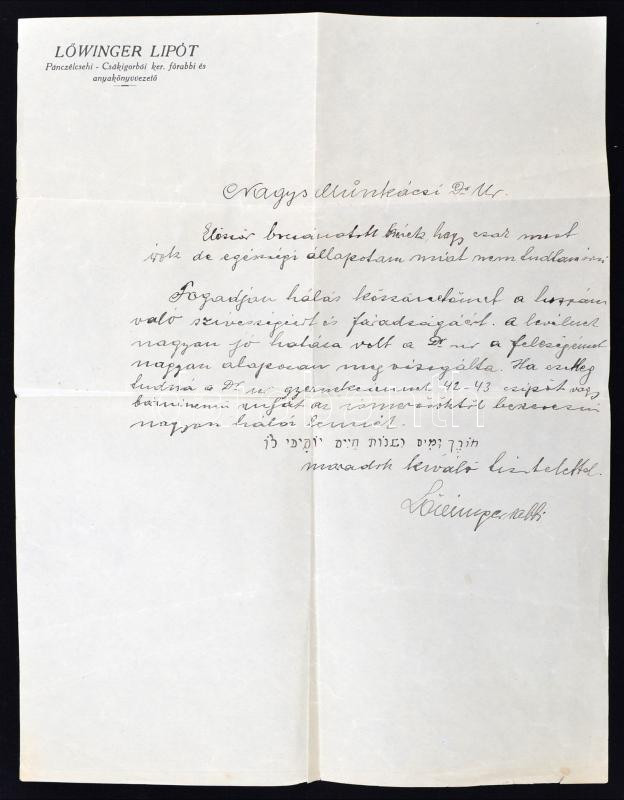 LŐWINGER LIPÓT
Pánczélcsehi - Csákigorbói ker. főrabbi és
anyakönyvvezető
Nagys Munkácsi Dr Ur.
Először bocsánatott kérek, hogy csak most
irok de egésségi állapotam miat nem tudtam
Fogadjon hálás köszönetömet a hozzám
való szivességiért és fáradságáért. a levélnek
nagyon jó hatása volt a Dr ur a feleségémet
nagyon alaposan megvizsgálta. Ha esetleg
tudná a Dr ur gyermekeimnek 42-43 csipőt vagy
bárminemü ruhát az ismerősöktől beszerezni
nagyon hálás lennék.
אורך ימים ושנות חיים יוסיפו לך
maradok kiváló tisztelettel.
Lőwinger rabbi